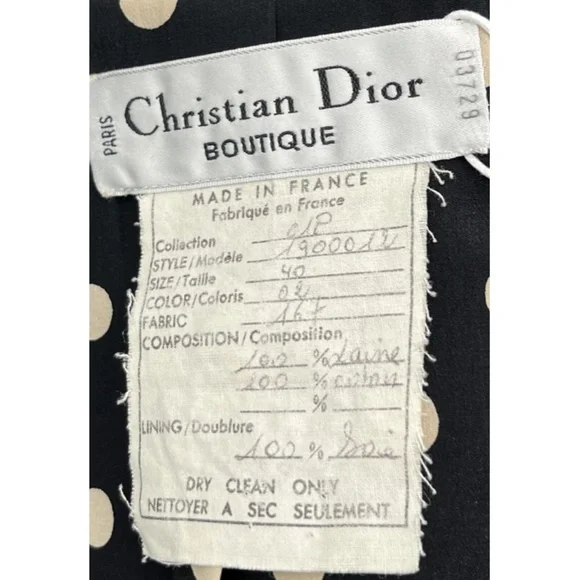 PARIS
Christian Dior
BOUTIQUE
03729
MADE IN FRANCE
Fabriqué en France
Collection 01P
STYLE/Modèle 1900012
SIZE/Taille 40
COLOR/Coloris 02
FABRIC 167
COMPOSITION/Composition
100 % Laine
100 % coton
%
LINING/Doublure
100 % Soie
DRY CLEAN ONLY
NETTOYER A SEC SEULEMENT